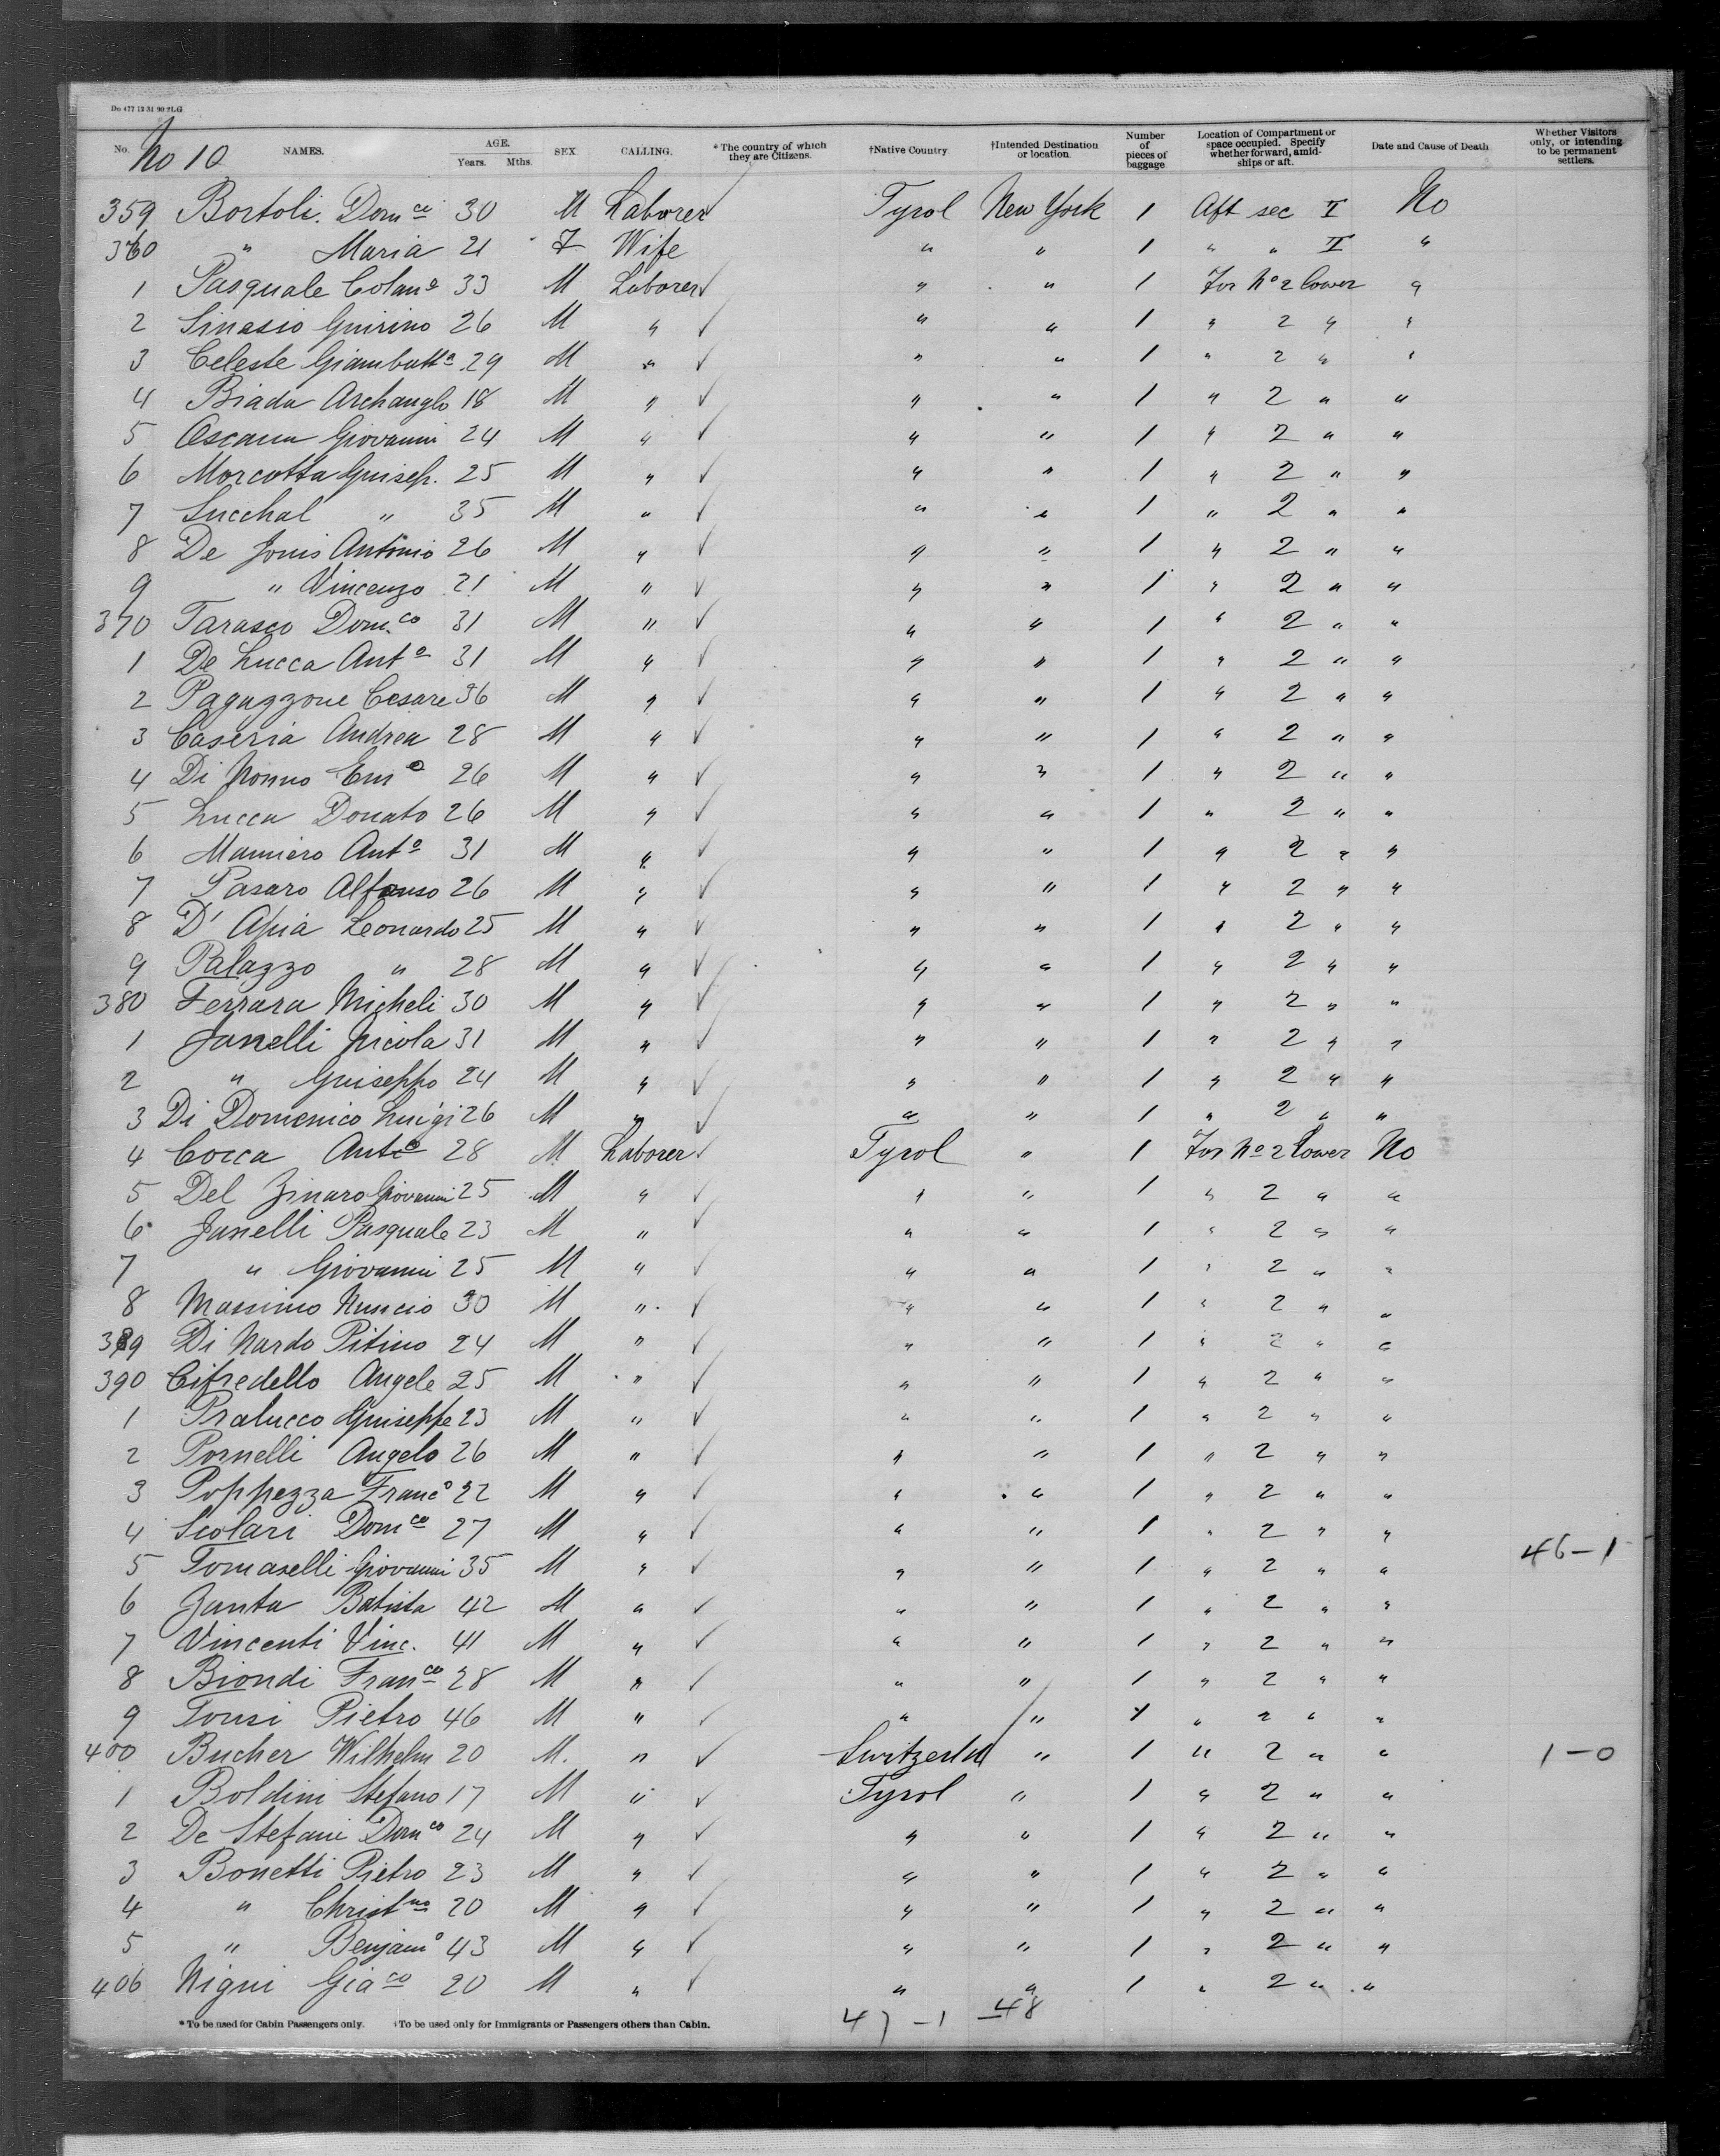 Do 477 12 31 90 2LG
No 10
No. NAMES. AGE. Years. Mths. SEX CALLING. *The country of which they are Citizens. †Native Country. †Intended Destination or location. Number of pieces of baggage Location of Compartment or space occupied. Specify whether forward, amid-ships or aft. Date and Cause of Death Whether Visitors only, or intending to be permanent settlers.
359 Bortoli. Domco 30 M Laborer ✓ Tyrol New York 1 Aft sec II No
360 " Maria 21 F Wife " " 1 " " II "
1 Pasquale Colano 33 M Laborer ✓ " " 1 For No 2 lower "
2 Sinasio Guirino 26 M " ✓ " " 1 " 2 " "
3 Celeste Giambatta 29 M " ✓ " " 1 " 2 " "
4 Biada Archanglo 18 M " ✓ " " 1 " 2 " "
5 Giovanni 24 M " ✓ " " 1 " 2 " "
6 Morcotta Guisep. 25 M " ✓ " " 1 " 2 " "
7 Succhal " 35 M " ✓ " " 1 " 2 " "
8 De Jonis Antonio 26 M " ✓ " " 1 " 2 " "
9 " Vincenzo 21 M " ✓ " " 1 " 2 " "
370 Tarasco Dom.co 31 M " ✓ " " 1 " 2 " "
1 De Lucca Anto 31 M " ✓ " " 1 " 2 " "
2 Paguzzone Cesare 36 M " ✓ " " 1 " 2 " "
3 Caseria Andrea 28 M " ✓ " " 1 " 2 " "
4 Di Nonno Emo 26 M " ✓ " " 1 " 2 " "
5 Lucca Donato 26 M " ✓ " " 1 " 2 " "
6 Manniero Anto 31 M " ✓ " " 1 " 2 " "
7 Pasaro Alfonso 26 M " ✓ " " 1 " 2 " "
8 D' Apia Leonardo 25 M " ✓ " " 1 " 2 " "
9 Palazzo " 28 M " ✓ " " 1 " 2 " "
380 Ferrara Micheli 30 M " ✓ " " 1 " 2 " "
1 Janelli Nicola 31 M " ✓ " " 1 " 2 " "
2 " Guiseppo 24 M " ✓ " " 1 " 2 " "
3 Di Domenico Luigi 26 M " ✓ " " 1 " 2 " "
4 Cocca Anto 28 M Laborer ✓ Tyrol " 1 For No 2 lower No
5 Del Zinaro Giovanni 25 M " ✓ " " 1 " 2 " "
6 Janelli Pasquale 23 M " ✓ " " 1 " 2 " "
7 " Giovanni 25 M " ✓ " " 1 " 2 " "
8 Massimo Nuncio 30 M " ✓ " " 1 " 2 " "
389 Di Nardo Pitino 24 M " ✓ " " 1 " 2 " "
390 Cifredello Angele 25 M " ✓ " " 1 " 2 " "
1 Pralucco Guiseppe 23 M " ✓ " " 1 " 2 " "
2 Pornelli Angelo 26 M " ✓ " " 1 " 2 " "
3 Poppezza Franco 22 M " ✓ " " 1 " 2 " "
4 Scolari Domco 27 M " ✓ " " 1 " 2 " "
5 Tomaselli Giovanni 35 M " ✓ " " 1 " 2 " " 46-1
6 Janta Batista 42 M " ✓ " " 1 " 2 " "
7 Vincenti Vinc. 41 M " ✓ " " 1 " 2 " "
8 Biondi Franco 28 M " ✓ " " 1 " 2 " "
9 Tonsi Pietro 46 M " ✓ " " 1 " 2 " "
400 Bucher Wilhelm 20 M. " ✓ Switzerld " 1 " 2 " " 1-0
1 Boldini Stefano 17 M " ✓ Tyrol " 1 " 2 " "
2 De Stefani Domco 24 M " ✓ " " 1 " 2 " "
3 Bonetti Pietro 23 M " ✓ " " 1 " 2 " "
4 " Christno 20 M " ✓ " " 1 " 2 " "
5 " Benjamo 43 M " ✓ " " 1 " 2 " "
406 Nigni Giaco 20 M " ✓ " " 1 " 2 " "
47-1 -48
*To be used for Cabin Passengers only. †To be used only for Immigrants or Passengers others than Cabin.